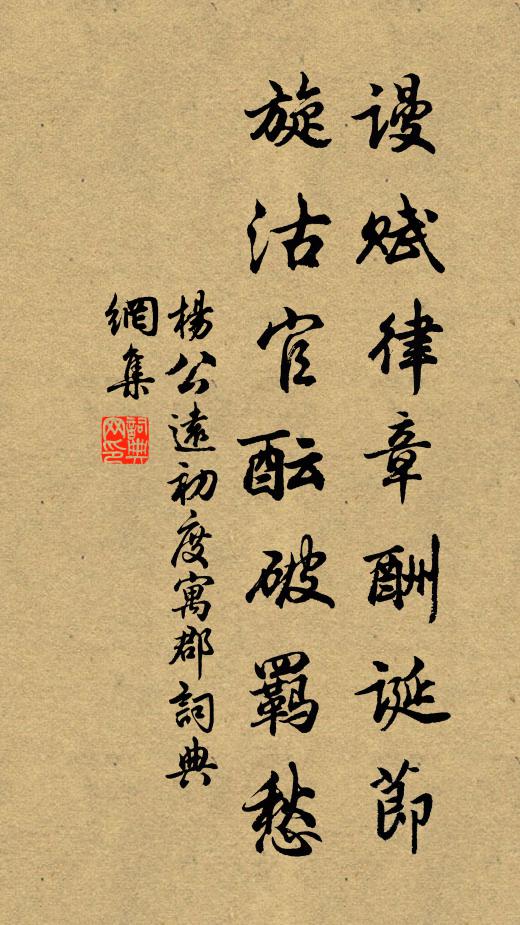 謾賦律章酬誕節
旋沽官酝破羈愁
楊公遠初度寓郡詞典
網集
詞典
网印